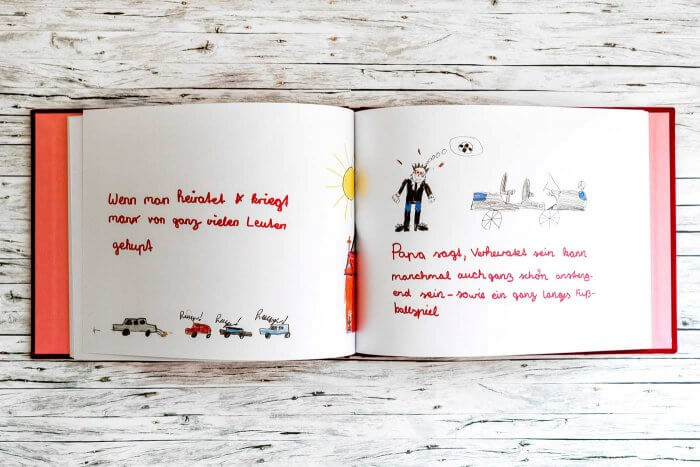 Wenn man heiratet kriegt
mann von ganz vielen Leuten
gehupt
Papa sagt, Verheiratet sein kann
manchmal auch ganz schön anstreng-
end sein - sowie ein ganz langes Fuß-
ballspiel